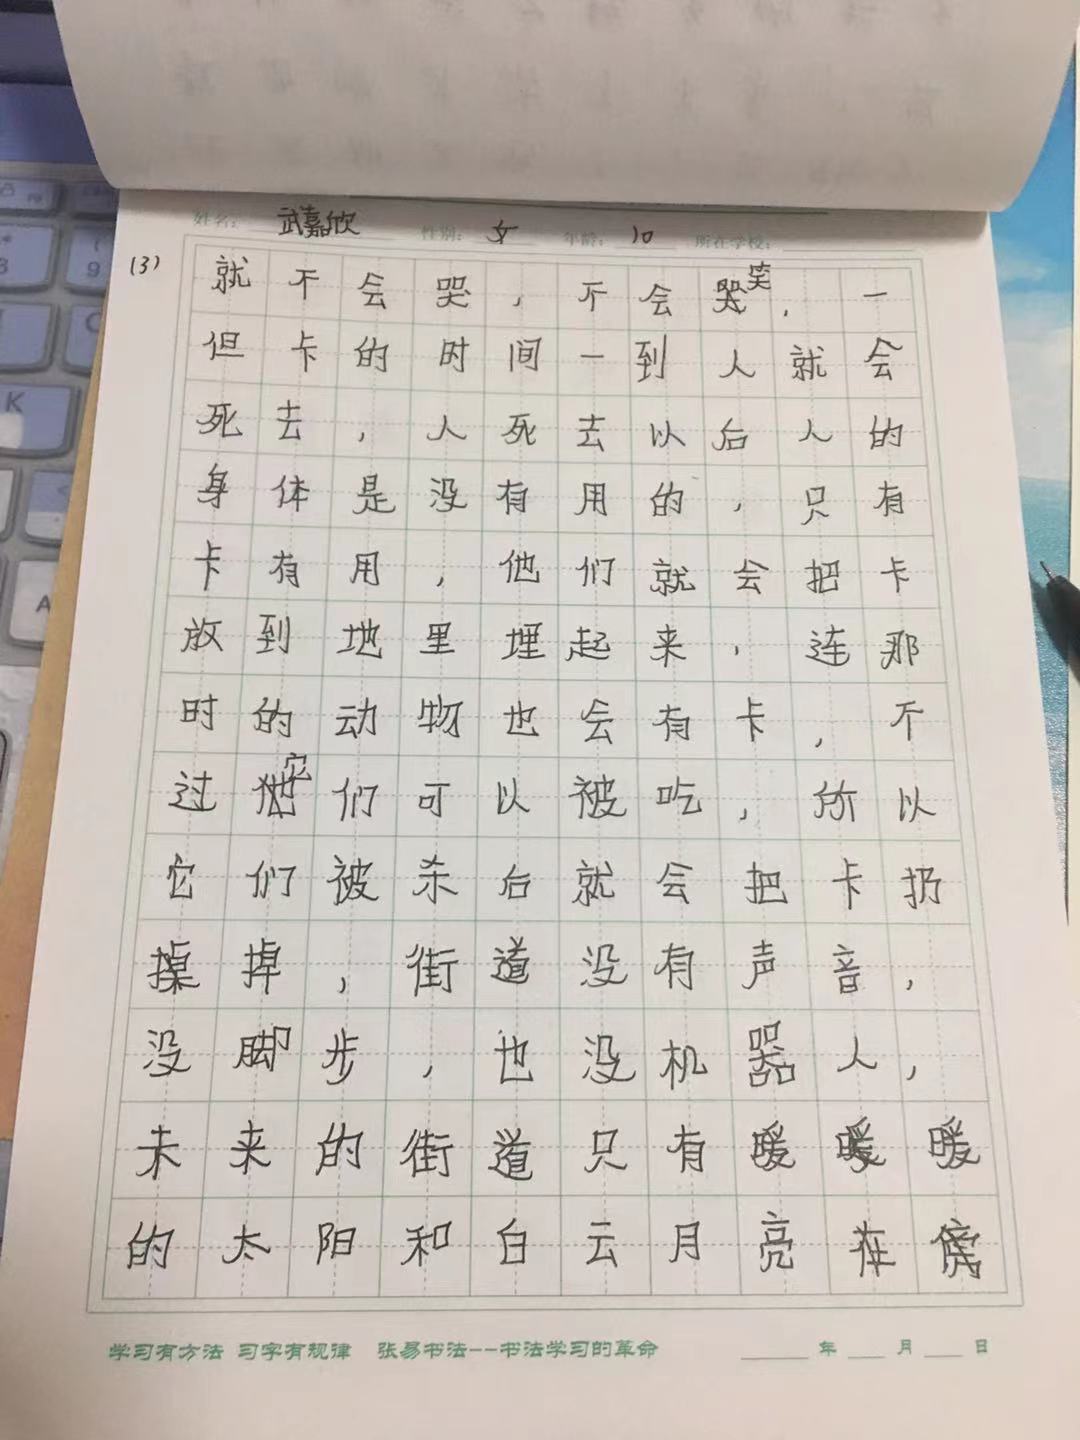 姓名： 武嘉欣 性别： 女 年龄： 10 所在学校：
(3)
就不会哭，不会笑，一
但卡的时间一到人就会
死去，人死去以后人的
身体是没有用的，只有
卡有用，他们就会把卡
放到地里埋起来，连那
时的动物也会有卡，不
过它们可以被吃，所以
它们被杀后就会把卡扔
掉，街道没有声音，
没脚步，也没机器人，
未来的街道只有暖暖
的太阳和白云月亮在
学习有方法 习字有规律 张易书法--书法学习的革命 年 月 日